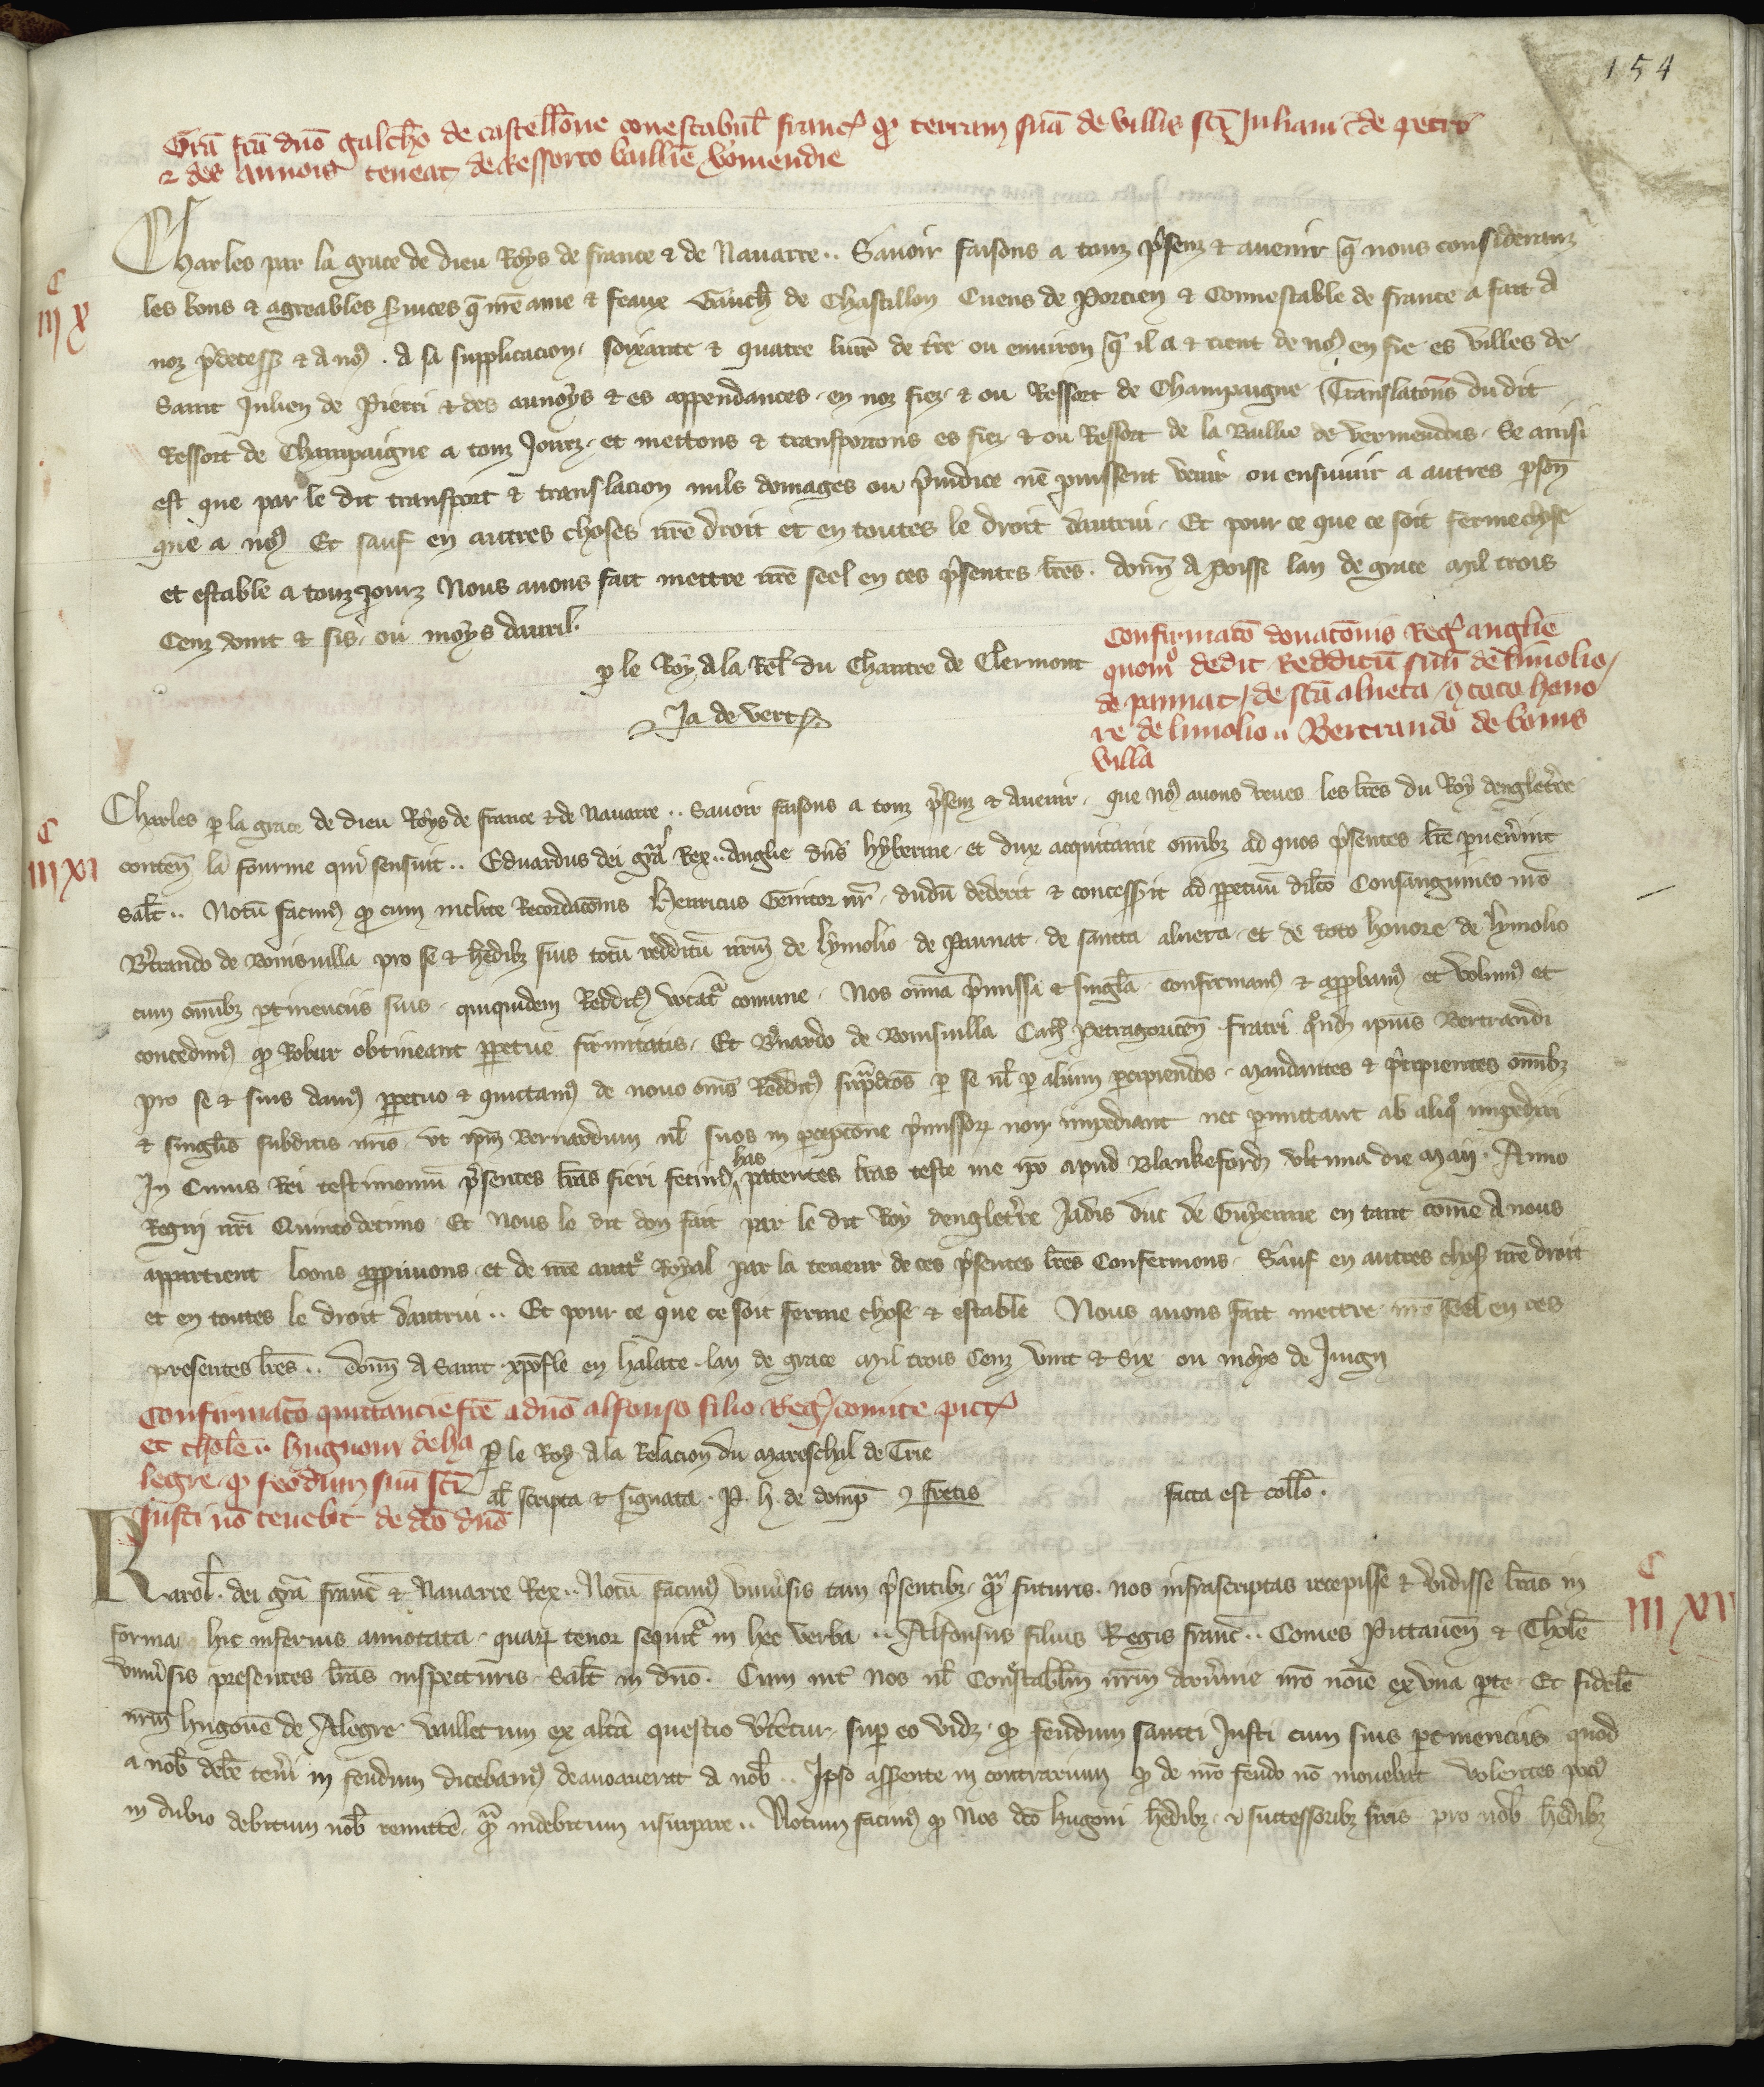 154
Grā fcā dno galcho de castellione conestabul franc qd terram suā de villis sci Juliani & de petri
& des aunois teneat de Ressorto baillie viromendie
Charles par la grace de dieu Roys de france & de Nauarre .. Sauoir faisons a touz psenz & auenir q nous consideranz
C
III X
les bons & agreables seruices q nre ame & feaux Gauch de Chastillon Cuens de Porcien & Connestable de france a fait a
noz predecess & a nos . A sa supplicacion soixante & quatre liures de tre ou enuiron q il a & tient de nos en fie es villes de
Saint Julien de Pietri & des aunoys & es appendances en noz fiez & ou Ressort de Champaigne Translatons du dit
Ressort de Champaigne a touz Jourz et mettons & transportons es fiez & ou Ressort de la Baillie de vermendois . Se ainsi
est que par le dit transport & translacion nuls domages ou preiudice ne puissent venir ou ensuiuir a autres psones
que a nos Et sauf en autres choses nre droit et en toutes le droit dautrui . Et pour ce que ce soit ferme chose
et estable a touz Jourz Nous auons fait mettre nre seel en ces psentes lres . donn a Poissi lan de grace Mil trois
Cenz vint & sis ou moys dauril .
p le Roy a la Rel du Chantre de Clermont
Ja de vert
Confirmato donatonis Reg anglie
quomo dedit Redditū suū de limolio
de paunat / de sta alueta / & toto hono
re de limolio .. Bertrando de bonis
villa
Charles p la grace de dieu Roys de france & de Nauarre .. Sauoir faisons a touz psenz & auenir . que nos auons veues les lres du Roy dengleterre
C
III XI
conten la fourme qui sensuit .. Eduardus dei gra Rex .. Anglie dns hybernie et dux acquitanie omibz ad quos psentes lre puenerint
Salt .. Notū facimus qd cum inclite Recordatonis Henricus Genitor nr dudū dederit & concesserit ad ppetuū dilco Consanguineo nro
Btrando de Bonisuilla pro se & hedibz suis totū redditū nrm de lymolio de Paunat de santa alueta et de toto honore de lymolio
cum omibz ptinenciis suis . quiquidem Redditus vocatr comune . Nos omia pmissa & singla confirmamus & approbamus et volumus et
concedimus qd Robur obtineant ppetue firmitatis . Et Bnardo de Bonisuilla Can Petragoricen fratri qnd ipius Bertrandi
pro se & suis damus ppetuo & quittamus de nouo oms Redditus supradcos p se ul p alium percipiendos . mandantes & precipientes omibz
& singlis subditis nris vt ipm Bernardum ul suos in perceptione pmissor non impediant nec pmittant ab aliquo impediri
In Cuius Rei testimoniū psentes lras fieri fecimus has patentes lras teste me ipo apud Blankeford vltima die Maii . Anno
Regni nri Quintodecimo Et Nous le dit don fait par le dit Roy dengleterre Jadis duc de Guyenne en tant cōme a nous
appartient Loons appruuons et de nre auctte Royal par la teneur de ces psentes lres Confermons . Sauf en autres chos nre droit
et en toutes le droit dautrui .. Et pour ce que ce soit ferme chose & estable Nous auons fait mettre nre seel en ces
presentes lres .. donn a Saint xpofle en halate lan de grace Mil trois Cenz vint & Six ou moys de Juign
Confirmato quittancie fce a dno alfonso filio Reg / comite pict
et tholē .. hugnoni de ha
legre qd feodum suū sci
Justi nō tenebit de dco dno
P le Roy a la Relacion du Mareschal de Trie
al scripta & signata . P. h. de domp & fretis
facta est collo .
Karol . dei gra franc & Nauarre Rex .. Notū facimus vniuersis tam psentibz qm futuris . nos infrascriptas recepisse & vidisse lras in
C
III XII
forma hic inferius annotata . quar tenor sequitr in hec verba .. Alfonsus filius Regis franc .. Comes Pictauen & Tholē
vniuersis presentes lras inspecturis . Salt in dno . Cum int nos ul Conestablm nrm aruernie nro noie ex vna pte . Et fidelē
nrm hugonē de Alegre vallletum ex altā questio vtetur . sup eo vidz qd feudum santi Justi cum suis ptinenciis quod
a nob debē teneri in feudum dicebamus deauoauerat a nob .. Ipso asserente in contrarium qd de nro feudo nō mouebat volentes poci
in dubio debitum nob remittē qm indebitum usurpare .. Notum facimus qd Nos dco hugoni hedibz & successoribz suis pro nob hedibz